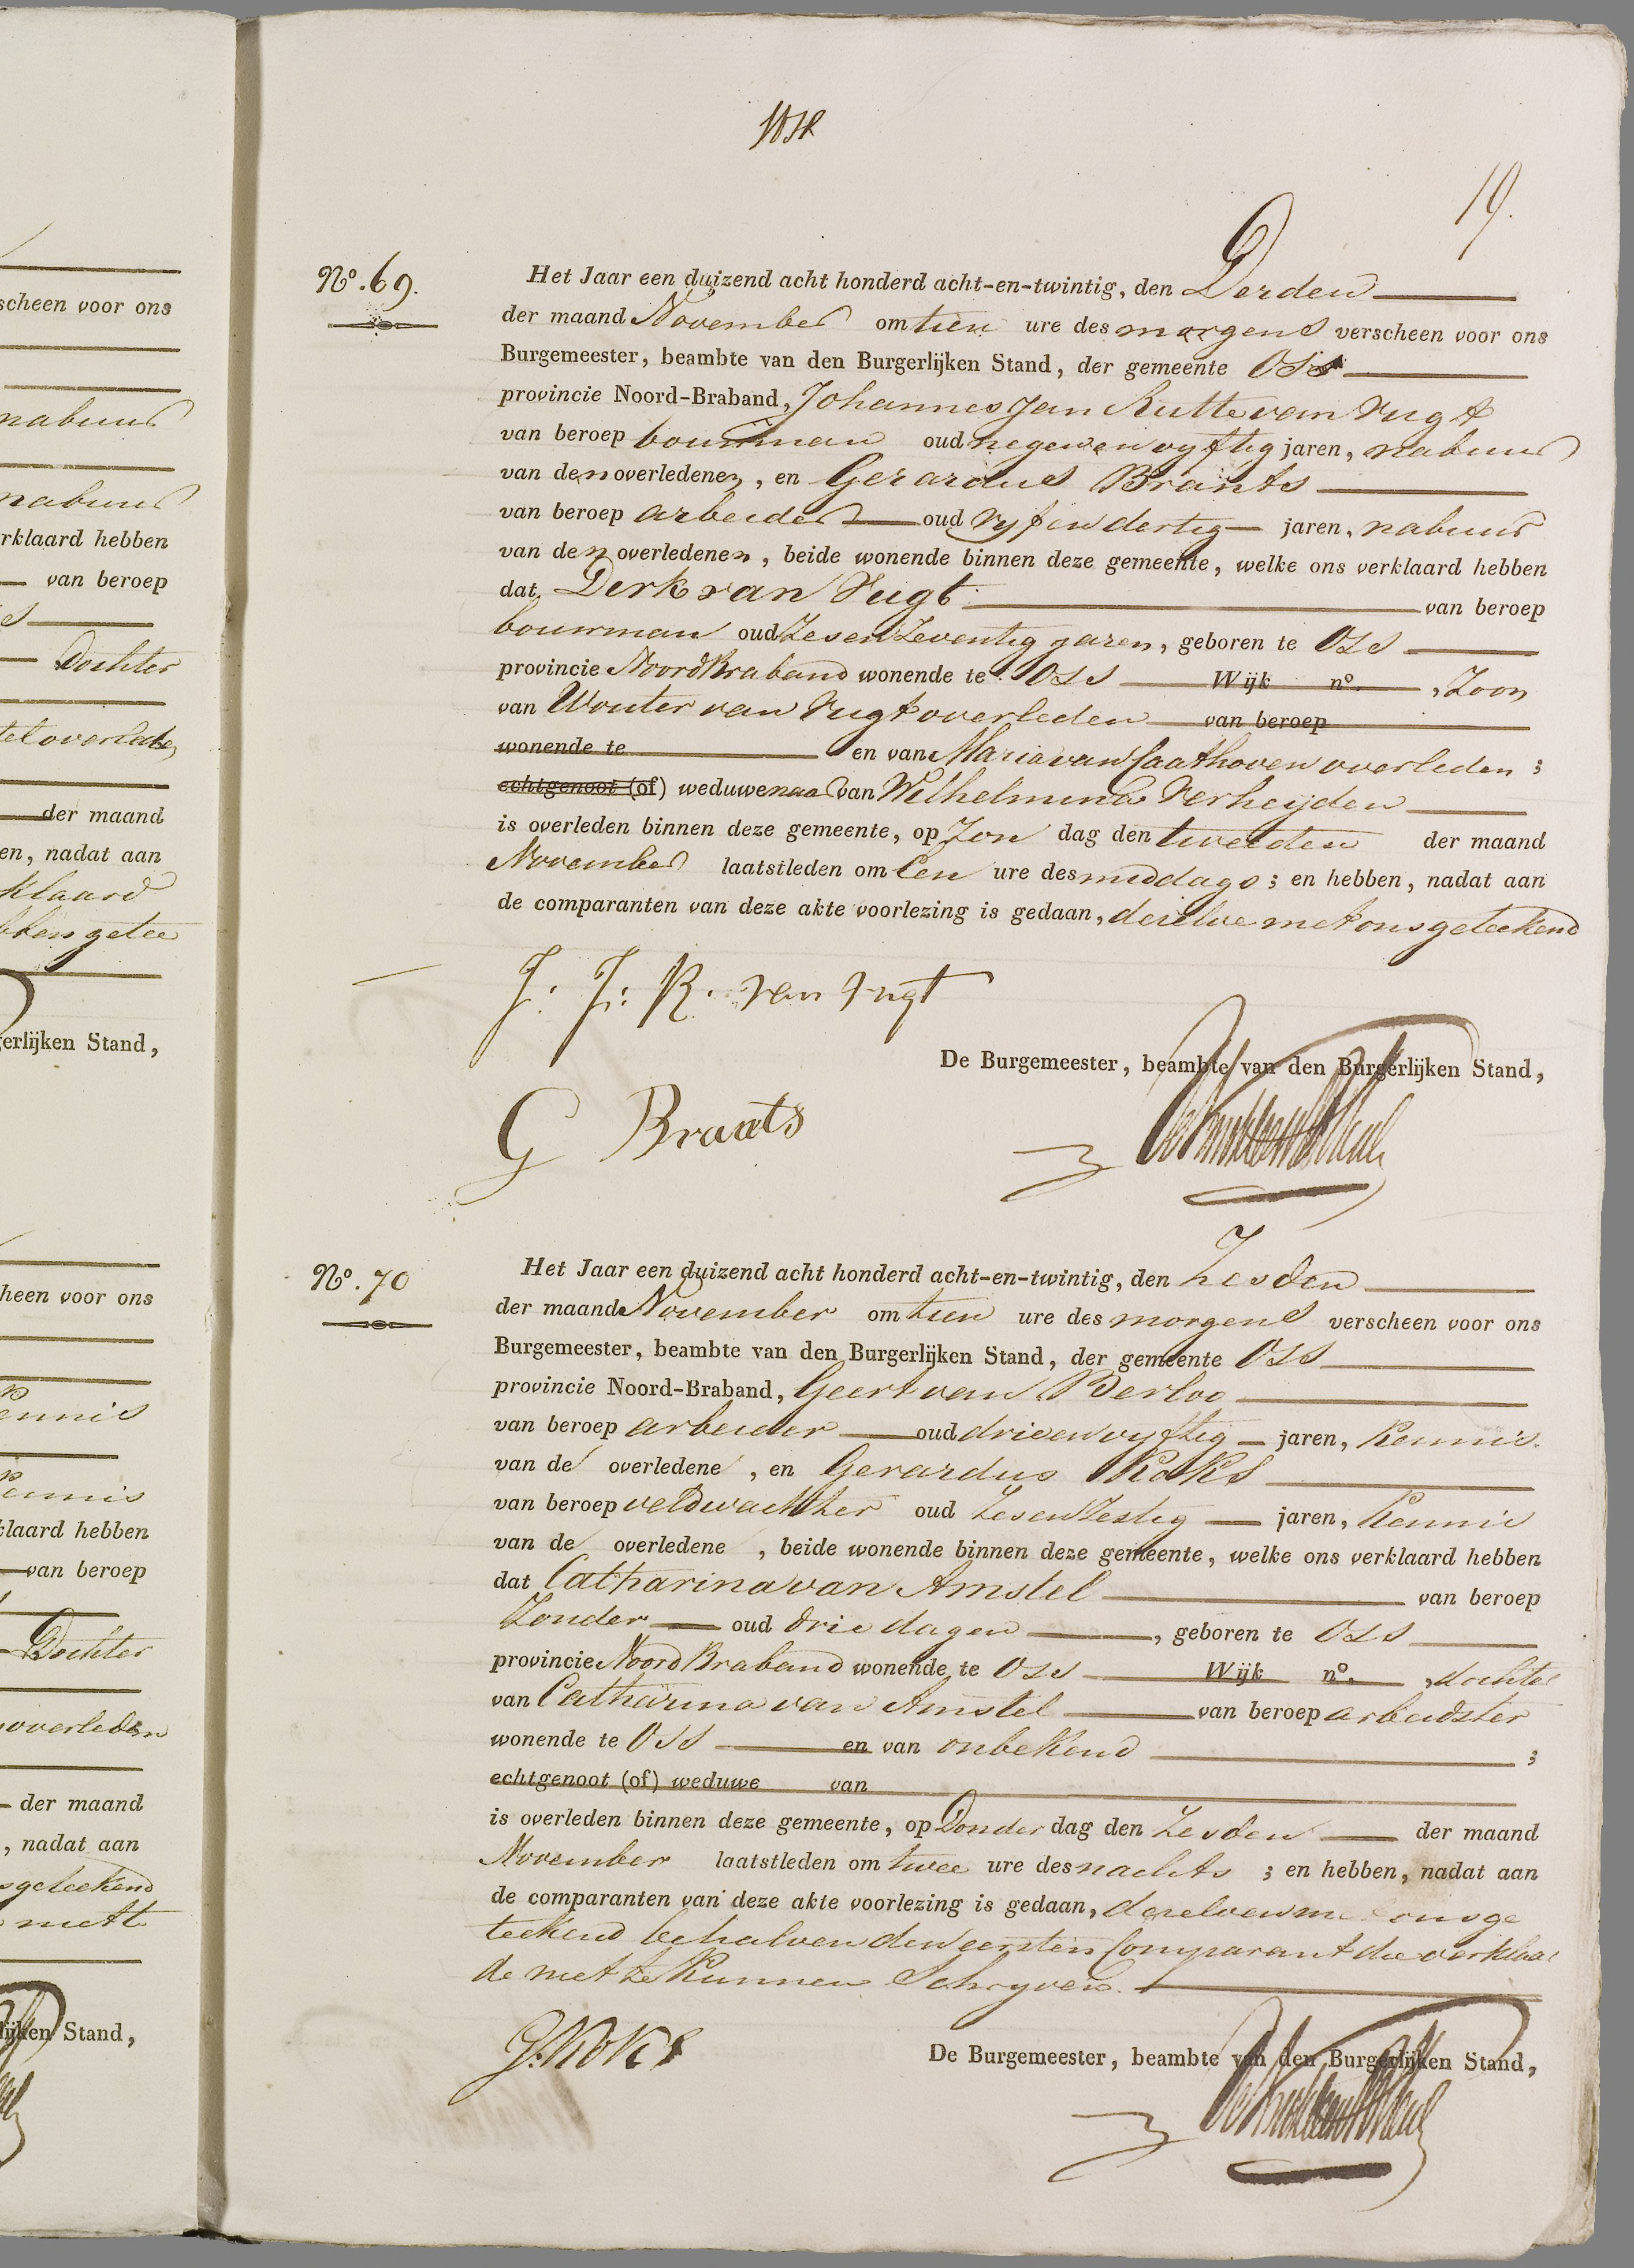 scheen voor ons
nabuur
nabuur
rklaard hebben
van beroep
Dochter
der maand
en, nadat aan
klaard
erlijken Stand,
heen voor ons
kennis
kennis
klaard hebben
van beroep
Dochter
overleden
der maand
, nadat aan
geteekend
lijken Stand,
19.
No. 69.
Het Jaar een duizend acht honderd acht-en-twintig, den Derden
der maand November om tien ure des morgens verscheen voor ons
Burgemeester, beambte van den Burgerlijken Stand, der gemeente Oss
provincie Noord-Braband, Johannes Jan Rutte van Vugt
van beroep bouwman oud negen en vyftig jaren, nabuur
van den overledenen, en Gerardus Brants
van beroep arbeider oud vyf en dertig jaren, nabuur
van den overledenen, beide wonende binnen deze gemeente, welke ons verklaard hebben
dat Derk van Vugt van beroep
bouwman oud Zes en Zeventig jaren, geboren te Oss
provincie Noord Braband wonende te Oss Wijk no. , Zoon
van Wouter van Vugt overleden van beroep
wonende te en van Maria van Caathoven overleden ;
echtgenoot (of) weduwenaar van Wilhelmina Verheyden
is overleden binnen deze gemeente, op Zon dag den tweeden der maand
November laatstleden om Een ure des middags ; en hebben, nadat aan
de comparanten van deze akte voorlezing is gedaan, dezelve met ons geteekend
J. J: R. van Vugt
De Burgemeester, beambte van den Burgerlijken Stand,
G Braats
No. 70
Het Jaar een duizend acht honderd acht-en-twintig, den Zesden
der maand November om tien ure des morgens verscheen voor ons
Burgemeester, beambte van den Burgerlijken Stand, der gemeente Oss
provincie Noord-Braband, Geert van Berloo
van beroep arbeider oud drie en vyftig jaren, kennis
van de overledene , en Gerardus Koks
van beroep veldwachter oud Zes en Zestig jaren, kennis
van de overledene , beide wonende binnen deze gemeente, welke ons verklaard hebben
dat Catharina van Amstel van beroep
Zonder oud drie dagen , geboren te Oss
provincie Noord Braband wonende te Oss Wijk no. , dochter
van Catharina van Amstel van beroep arbeidster
wonende te Oss en van onbekend ;
echtgenoot (of) weduwe van
is overleden binnen deze gemeente, op Donder dag den Zesden der maand
November laatstleden om twee ure des nachts ; en hebben, nadat aan
de comparanten van deze akte voorlezing is gedaan, dezelven met ons ge
teekend behalven den eersten Comparant die verklaar
de niet te kunnen Schryven.
G. Koks
De Burgemeester, beambte van den Burgerlijken Stand,